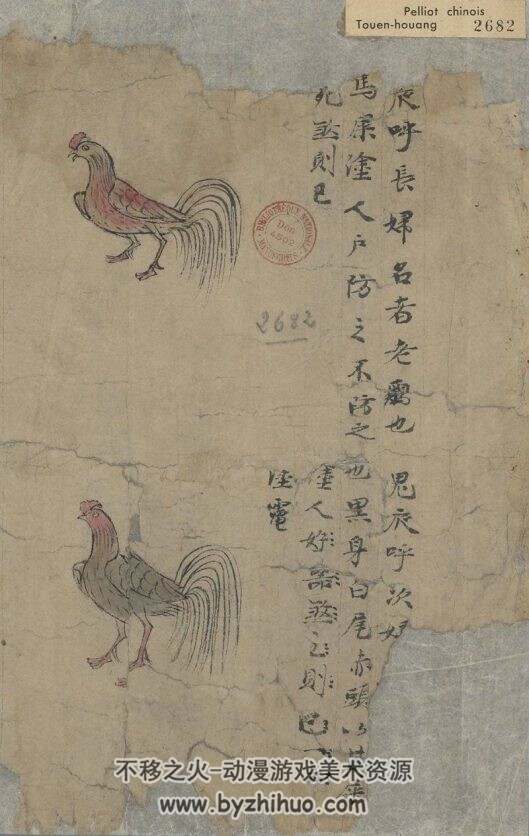 Pelliot chinois
Touen-houang 2682
夜呼長婦名者老鷄也 鬼夜呼次婦
馬屎塗人戶防之不防之也黑身白尾赤頭以其
死煞則已
塗人好煞之則已
2682
Don 4502
不移之火-动漫游戏美术资源
www.byzhihuo.com